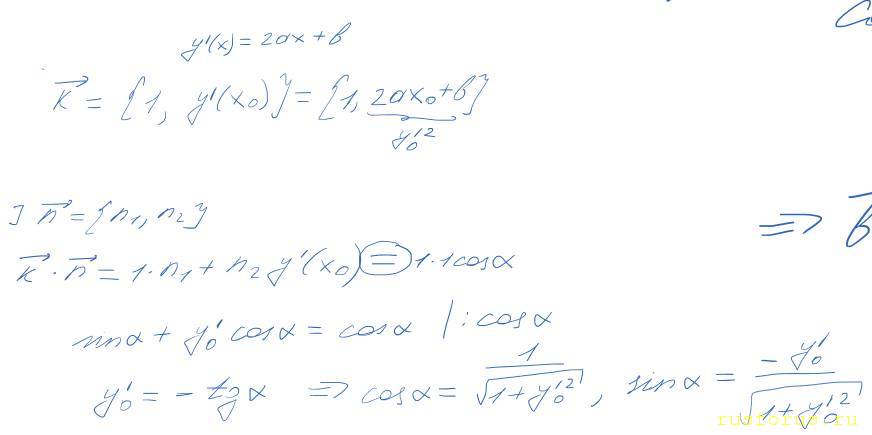 y'(x) = 2ax + b
k⃗ = {1, y'(x₀)} = {1, 2ax₀ + b}
y₀'²
] n⃗ = {n₁, n₂}
k⃗ · n⃗ = 1·n₁ + n₂ y'(x₀) = 1·1cosα
⇒
sinα + y₀' cosα = cosα | : cosα
y₀' = − tgα ⇒ cosα = 1/√(1 + y₀'²), sinα = −y₀'/√(1 + y₀'²)
rusforus.ru